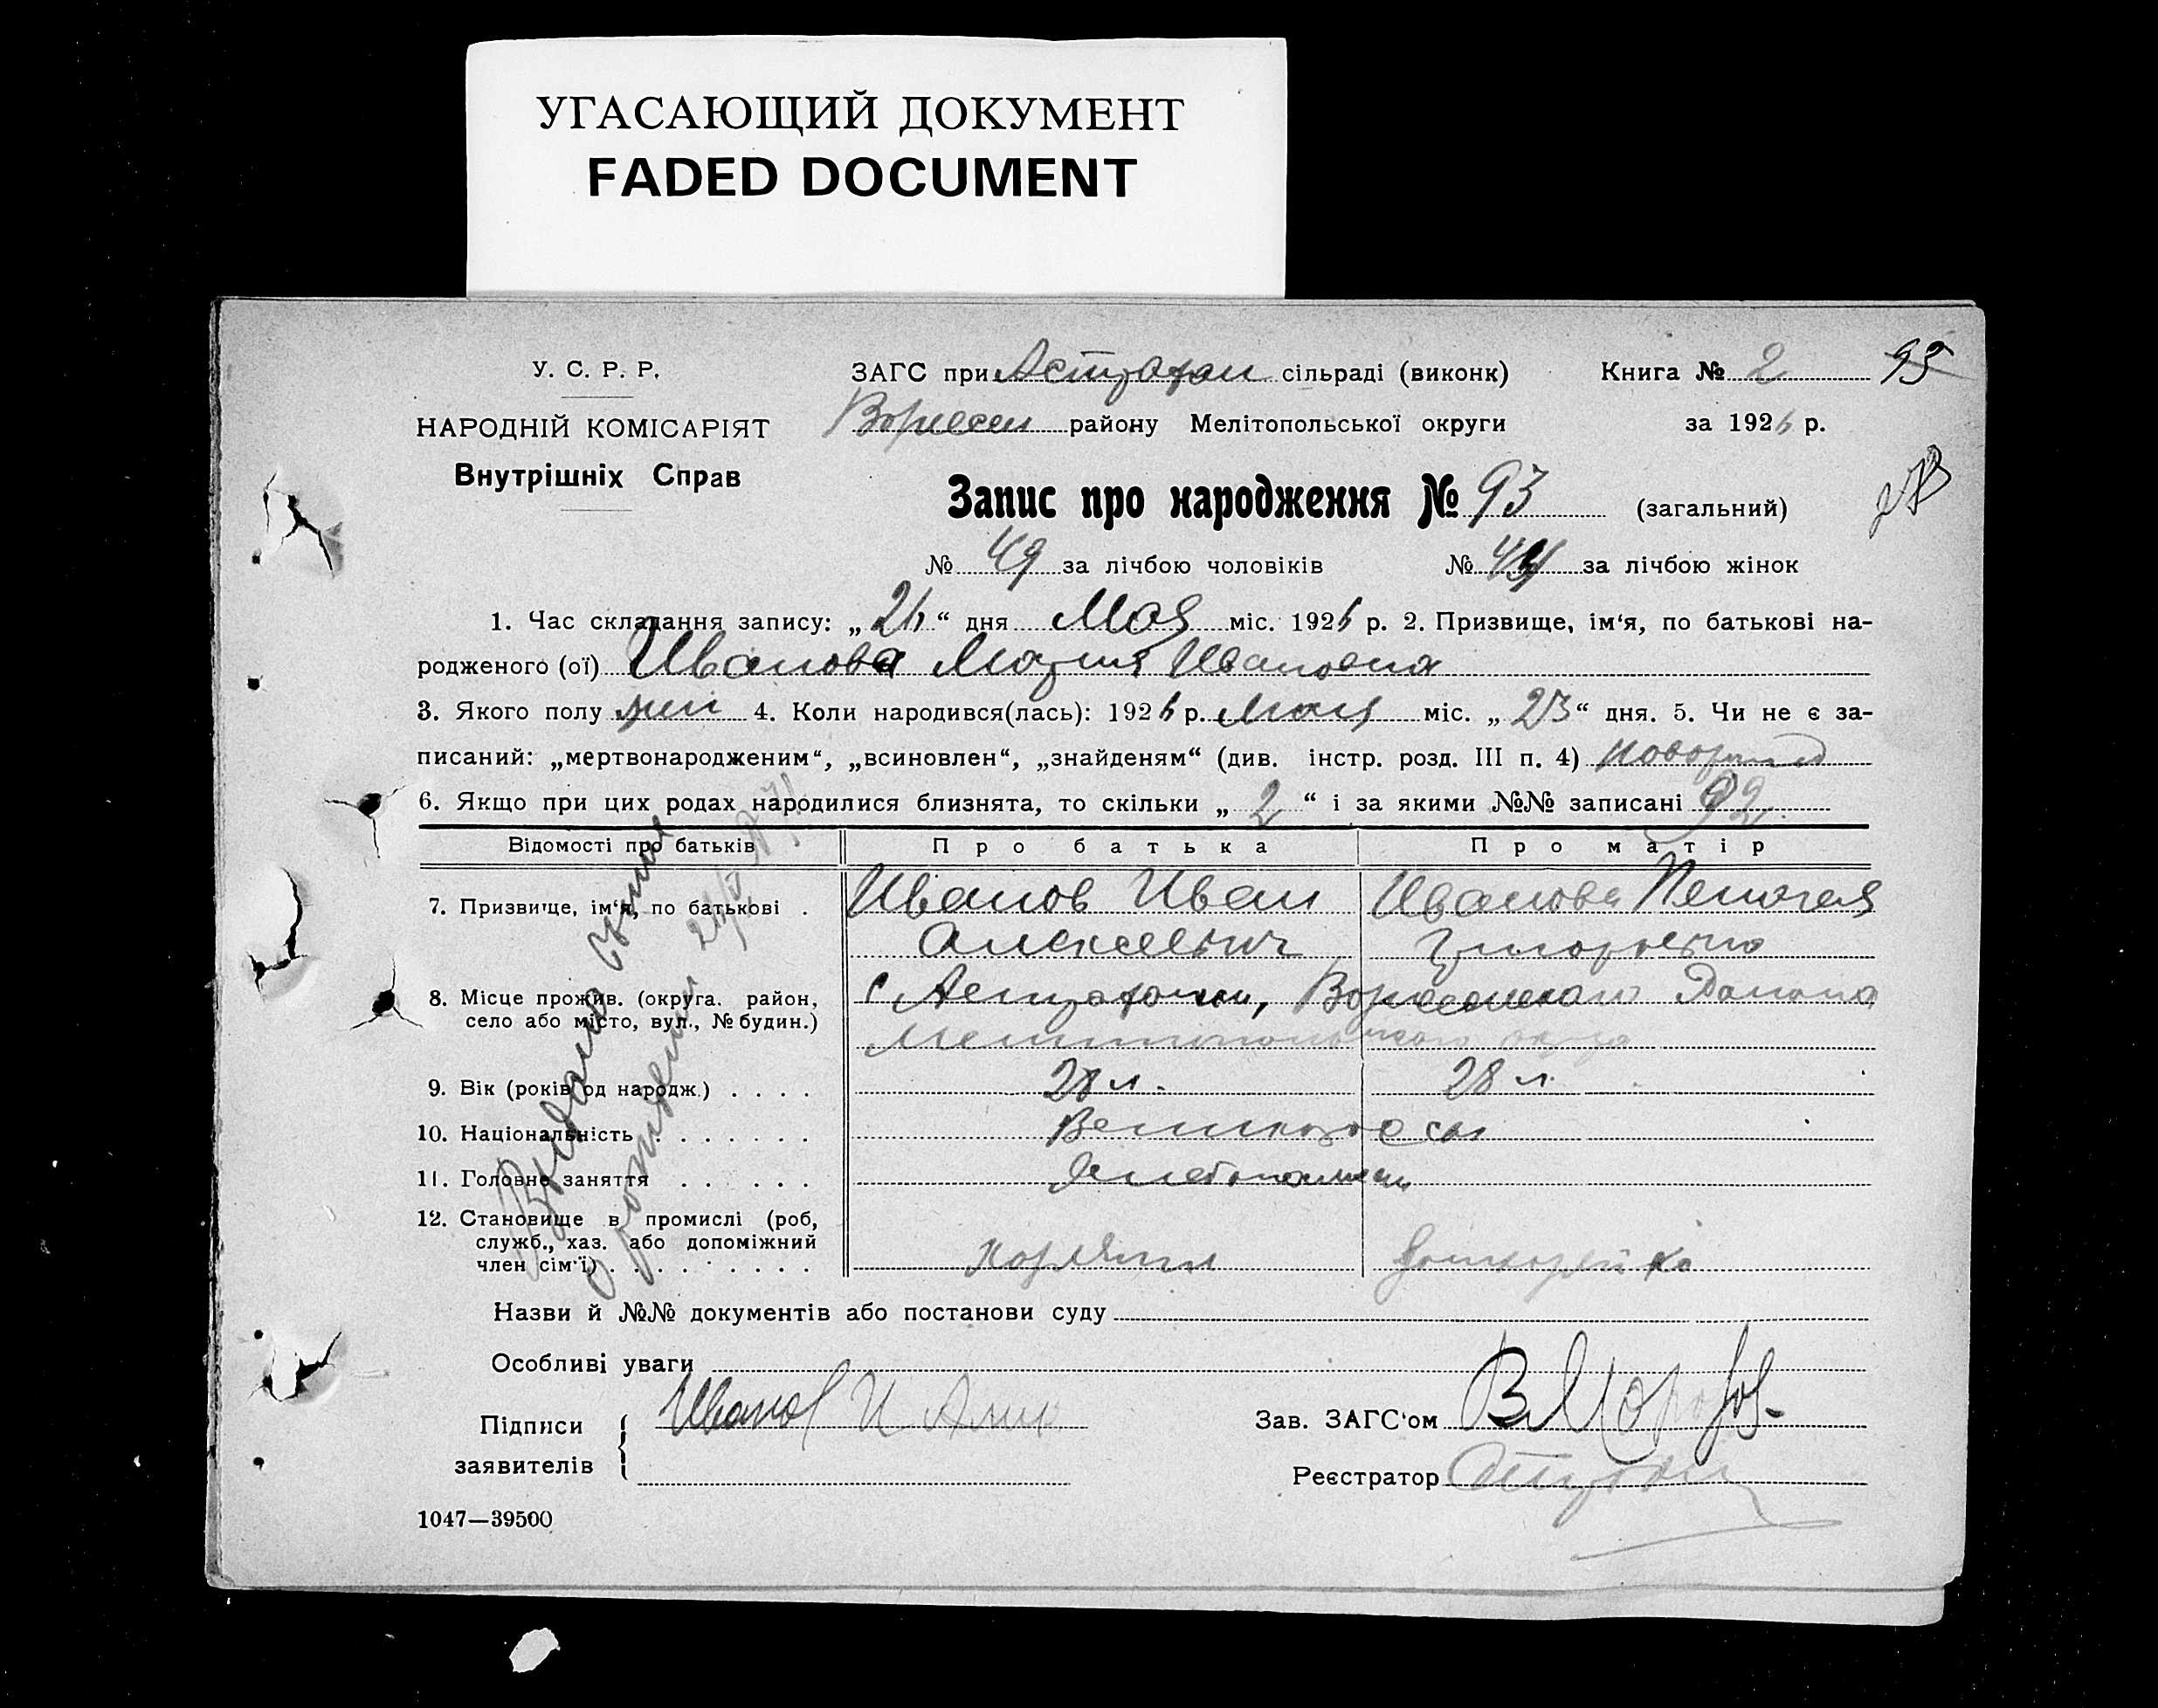 УГАСАЮЩИЙ ДОКУМЕНТ
FADED DOCUMENT
У. С. Р. Р.
НАРОДНІЙ КОМІСАРІЯТ
Внутрішніх Справ
ЗАГС при Астрахан сільраді (виконк)
району Мелітопольської округи
Книга № 2
95
за 1926 р.
Запис про народження № 93 (загальний)
№ 49 за лічбою чоловіків № 44 за лічбою жінок
1. Час складання запису: „26“ дня Мая міс. 1926 р. 2. Призвище, ім‘я, по батькові на-
родженого (ої) Иванова Мария Ивановна
3. Якого полу жен 4. Коли народився(лась): 1926 р. Мая міс. „23“ дня. 5. Чи не є за-
писаний: „мертвонародженим“, „всиновлен“, „знайденям“ (див. інстр. розд. III п. 4)
6. Якщо при цих родах народилися близнята, то скільки „2“ і за якими №№ записані 92
Відомості про батьків Про батька Про матір
7. Призвище, ім‘я, по батькові . Иванов Иван Иванова Пелагея
Алексеевич Григорьевна
8. Місце прожив. (округа. район, с Астраханки,
село або місто, вул., № будин.)
Мелитопольского округа
9. Вік (років од народж.) . . . . 28 л. 28 л.
10. Національність . . . . . . . Великороссы
11. Головне заняття . . . . . . Хлебопашец
12. Становище в промислі (роб,
служб., хаз. або допоміжний
член сім‘ї) . . . . . . . . . хозяин домохозяйка
Выдана
о рождении
Назви й №№ документів або постанови суду
Особливі уваги
Підписи
заявителів
Иванов И.
Зав. ЗАГС‘ом В Морозов
Реєстратор
1047—39500